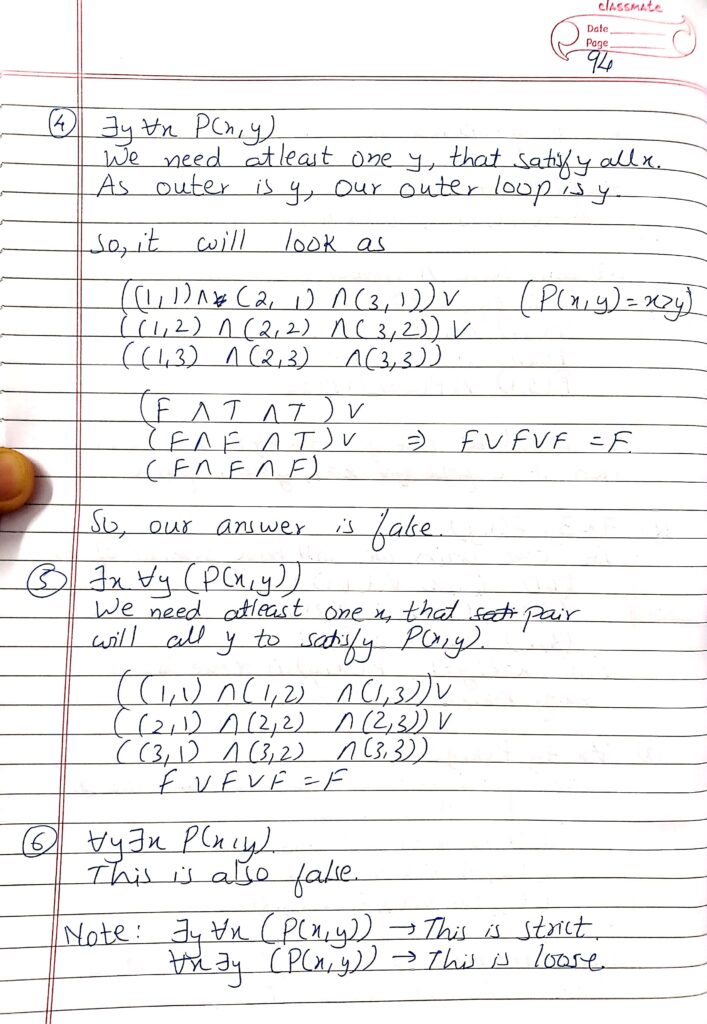 classmate
Date
Page
94
④ ∃y ∀x P(x,y)
We need atleast one y, that satisfy all x.
As outer is y, our outer loop is y.
So, it will look as
((1,1) ∧ (2, 1) ∧ (3,1)) ∨ (P(x,y) = x>y)
((1,2) ∧ (2,2) ∧ (3,2)) ∨
((1,3) ∧ (2,3) ∧ (3,3))
(F ∧ T ∧ T) ∨
(F ∧ F ∧ T) ∨ ⇒ F ∨ F ∨ F = F.
(F ∧ F ∧ F)
So, our answer is false.
⑤ ∃x ∀y (P(x,y))
We need atleast one x, that pair
will all y to satisfy P(x,y).
((1,1) ∧ (1,2) ∧ (1,3)) ∨
((2,1) ∧ (2,2) ∧ (2,3)) ∨
((3,1) ∧ (3,2) ∧ (3,3))
F ∨ F ∨ F = F
⑥ ∀y ∃x P(x,y)
This is also false.
Note: ∃y ∀x (P(x,y)) → This is strict.
∀x ∃y (P(x,y)) → This is loose.